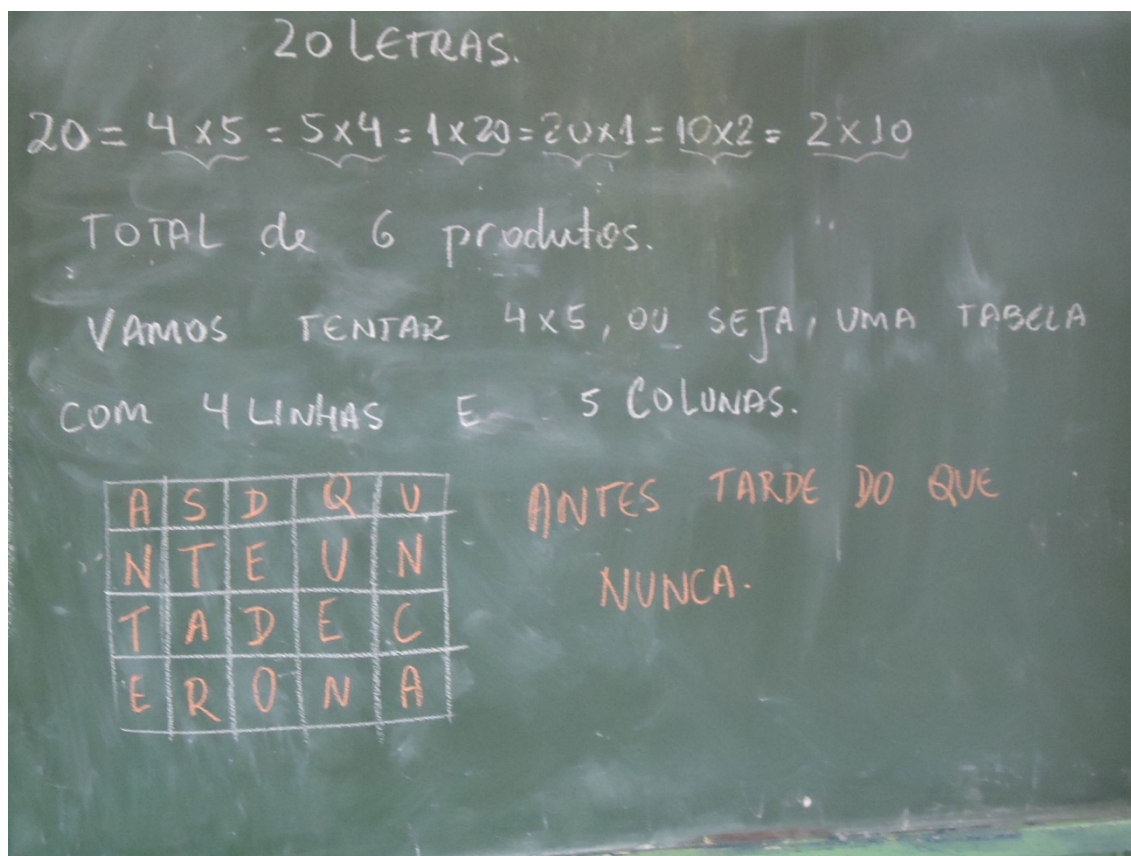 20 LETRAS.
20 = 4 x 5 = 5 x 4 = 1 x 20 = 20 x 1 = 10 x 2 = 2 x 10
TOTAL de 6 produtos.
VAMOS TENTAR 4 x 5, OU SEJA, UMA TABELA
COM 4 LINHAS E 5 COLUNAS.
A S D Q U
N T E U N
T A D E C
E R O N A
ANTES TARDE DO QUE
NUNCA.